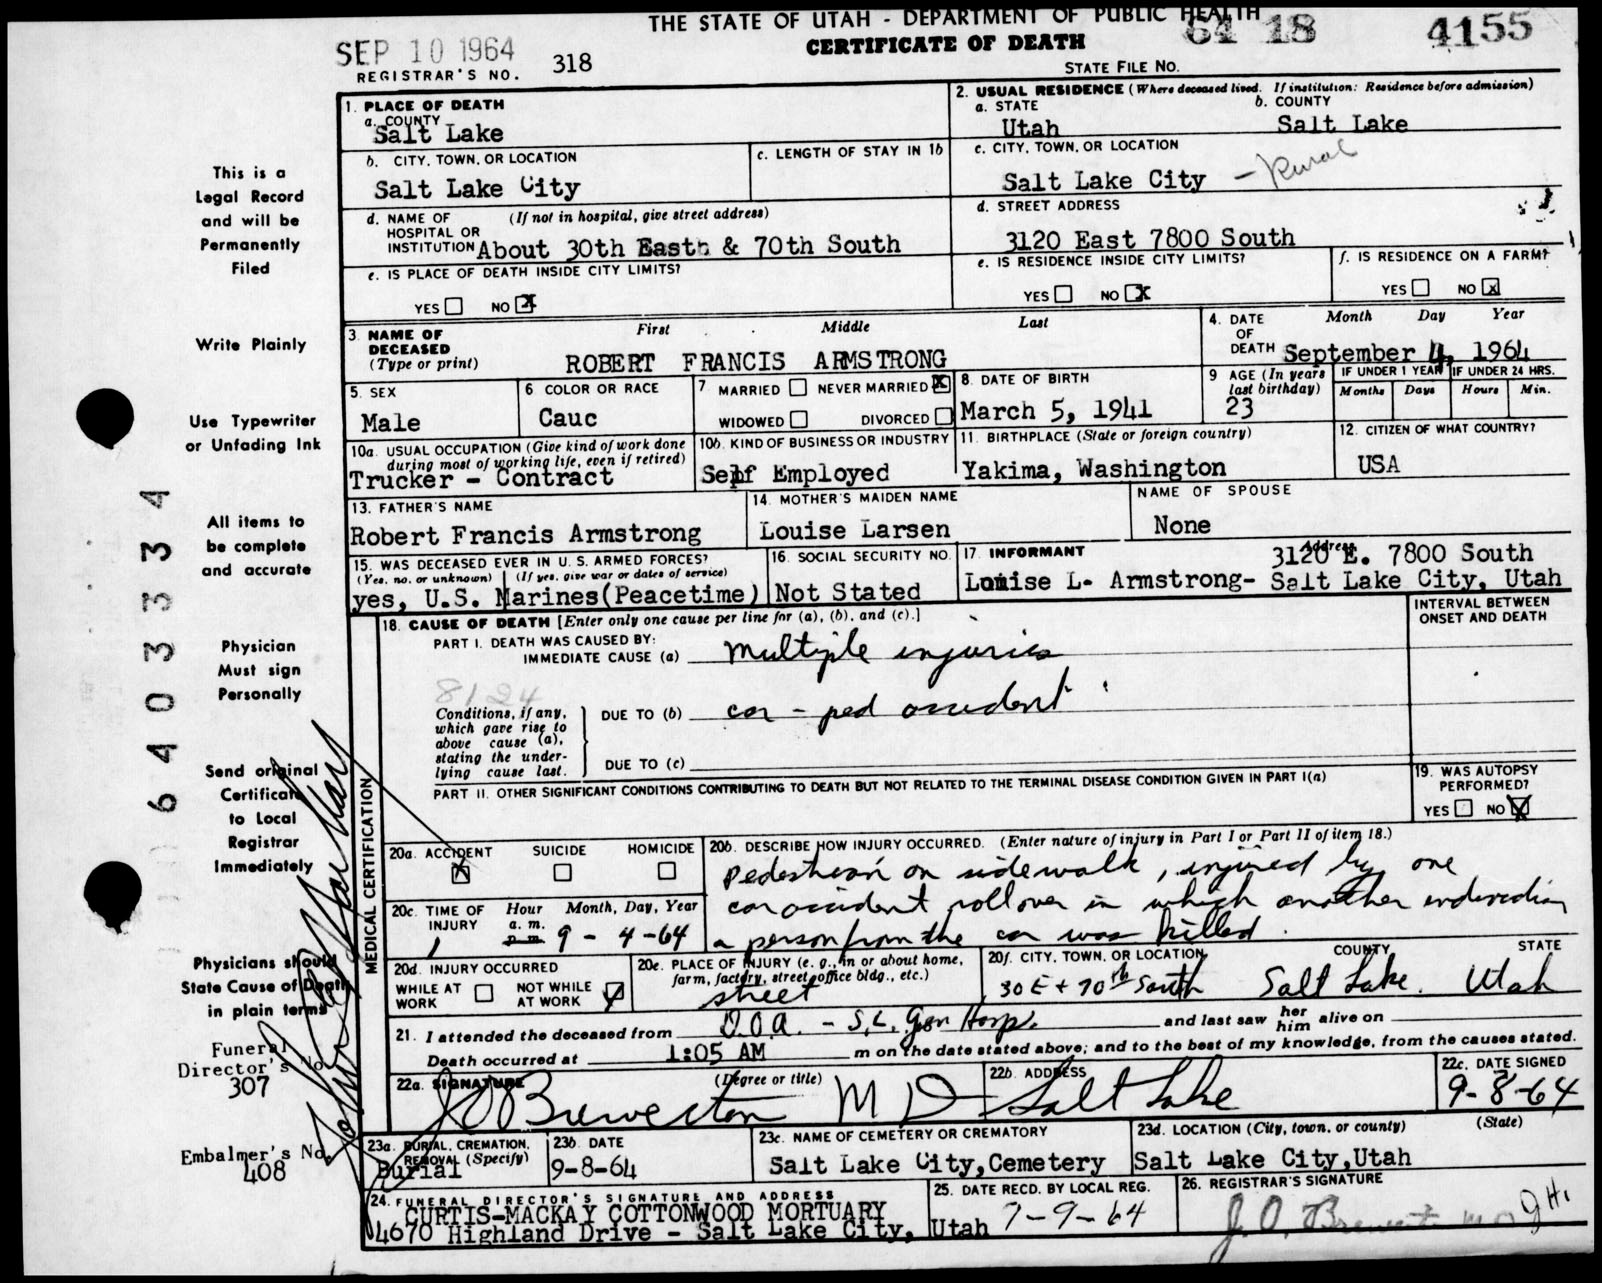 THE STATE OF UTAH - DEPARTMENT OF PUBLIC HEALTH
CERTIFICATE OF DEATH
64 18 4155
SEP 10 1964
REGISTRAR'S NO. 318
STATE FILE NO.
This is a
Legal Record
and will be
Permanently
Filed
Write Plainly
Use Typewriter
or Unfading Ink
All items to
be complete
and accurate
Physician
Must sign
Personally
Send original
Certificate
to Local
Registrar
Immediately
Physicians should
State Cause of Death
in plain terms
Funeral
Director's No.
307
Embalmer's No.
408
6403334
1. PLACE OF DEATH
a. COUNTY
Salt Lake
2. USUAL RESIDENCE (Where deceased lived. If institution: Residence before admission)
a. STATE b. COUNTY
Utah Salt Lake
b. CITY, TOWN, OR LOCATION
Salt Lake City
c. LENGTH OF STAY IN 1b
c. CITY, TOWN, OR LOCATION
Salt Lake City - Rural
d. NAME OF (If not in hospital, give street address)
HOSPITAL OR
INSTITUTION About 30th East & 70th South
d. STREET ADDRESS
3120 East 7800 South
e. IS PLACE OF DEATH INSIDE CITY LIMITS?
YES NO X
e. IS RESIDENCE INSIDE CITY LIMITS?
YES NO X
f. IS RESIDENCE ON A FARM?
YES NO X
3. NAME OF First Middle Last
DECEASED
(Type or print) ROBERT FRANCIS ARMSTRONG
4. DATE Month Day Year
OF
DEATH September 4, 1964
5. SEX
Male
6. COLOR OR RACE
Cauc
7. MARRIED NEVER MARRIED X
WIDOWED DIVORCED
8. DATE OF BIRTH
March 5, 1941
9 AGE (In years
last birthday)
23
IF UNDER 1 YEAR
Months Days
IF UNDER 24 HRS.
Hours Min.
10a. USUAL OCCUPATION (Give kind of work done
during most of working life, even if retired)
Trucker - Contract
10b. KIND OF BUSINESS OR INDUSTRY
Self Employed
11. BIRTHPLACE (State or foreign country)
Yakima, Washington
12. CITIZEN OF WHAT COUNTRY?
USA
13. FATHER'S NAME
Robert Francis Armstrong
14. MOTHER'S MAIDEN NAME
Louise Larsen
NAME OF SPOUSE
None
15. WAS DECEASED EVER IN U. S. ARMED FORCES?
(Yes, no, or unknown) (If yes, give war or dates of service)
yes, U.S. Marines(Peacetime)
16. SOCIAL SECURITY NO.
Not Stated
17. INFORMANT Address
3120 E. 7800 South
Louise L- Armstrong- Salt Lake City, Utah
MEDICAL CERTIFICATION
18. CAUSE OF DEATH [Enter only one cause per line for (a), (b), and (c).]
INTERVAL BETWEEN
ONSET AND DEATH
PART I. DEATH WAS CAUSED BY:
IMMEDIATE CAUSE (a) multiple injuries
8124
Conditions, if any,
which gave rise to
above cause (a),
stating the under-
lying cause last.
DUE TO (b) car - ped accident
DUE TO (c)
PART II. OTHER SIGNIFICANT CONDITIONS CONTRIBUTING TO DEATH BUT NOT RELATED TO THE TERMINAL DISEASE CONDITION GIVEN IN PART I(a)
19. WAS AUTOPSY
PERFORMED?
YES NO X
20a. ACCIDENT SUICIDE HOMICIDE
X
20b. DESCRIBE HOW INJURY OCCURRED. (Enter nature of injury in Part I or Part II of item 18.)
Pedestrian on sidewalk, injured by one
car accident rollover in which another
a person from the car was killed.
20c. TIME OF Hour Month, Day, Year
INJURY a. m.
p. m.
1 9 - 4 -64
20d. INJURY OCCURRED
WHILE AT WORK NOT WHILE AT WORK
20e. PLACE OF INJURY (e. g., in or about home,
farm, factory, street, office bldg., etc.)
street
20f. CITY, TOWN, OR LOCATION COUNTY STATE
30 E + 70th South Salt Lake. Utah
21. I attended the deceased from D.O.A. - S.L. Gen Hosp. and last saw her him alive on
Death occurred at 1:05 AM m on the date stated above; and to the best of my knowledge, from the causes stated.
22a. SIGNATURE (Degree or title)
J O Brewerton M D
22b. ADDRESS
Salt Lake
22c. DATE SIGNED
9-8-64
23a. BURIAL, CREMATION,
REMOVAL (Specify)
Burial
23b DATE
9-8-64
23c. NAME OF CEMETERY OR CREMATORY
Salt Lake City, Cemetery
23d. LOCATION (City, town, or county) (State)
Salt Lake City,Utah
24. FUNERAL DIRECTOR'S SIGNATURE AND ADDRESS
CURTIS-MACKAY COTTONWOOD MORTUARY
4670 Highland Drive - Salt Lake City, Utah
25. DATE RECD. BY LOCAL REG.
9-9-64
26. REGISTRAR'S SIGNATURE